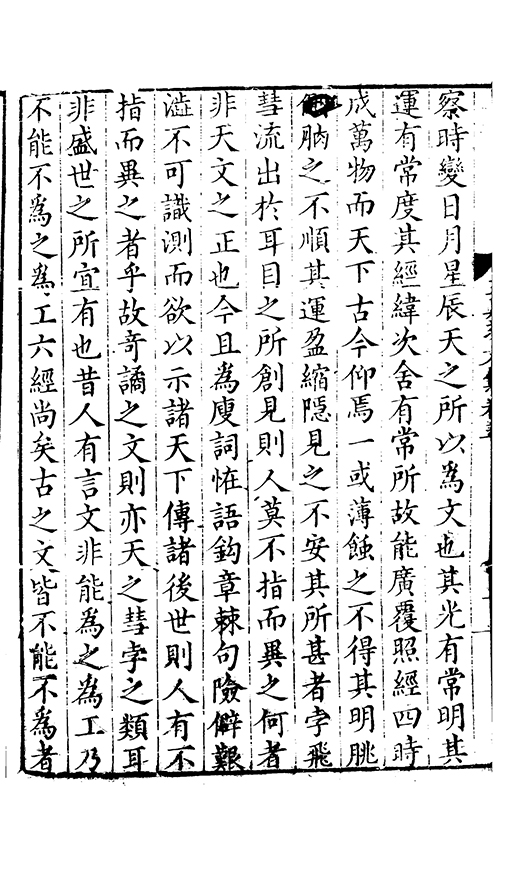 察時變日月星辰天之所以為文也其光有常明其
運有常度其經緯次舍有常所故能廣覆照經四時
成萬物而天下古今仰焉一或薄蝕之不得其明朓
朒之不順其運盈縮隱見之不安其所甚者孛飛
彗流出於耳目之所創見則人莫不指而異之何者
非天文之正也今且為廋詞恠語鈎章棘句險僻艱
澁不可識測而欲以示諸天下傳諸後世則人有不
指而異之者乎故奇譎之文則亦天之彗孛之類耳
非盛世之所宜有也昔人有言文非能為之為工乃
不能不為之為工六經尚矣古之文皆不能不為者